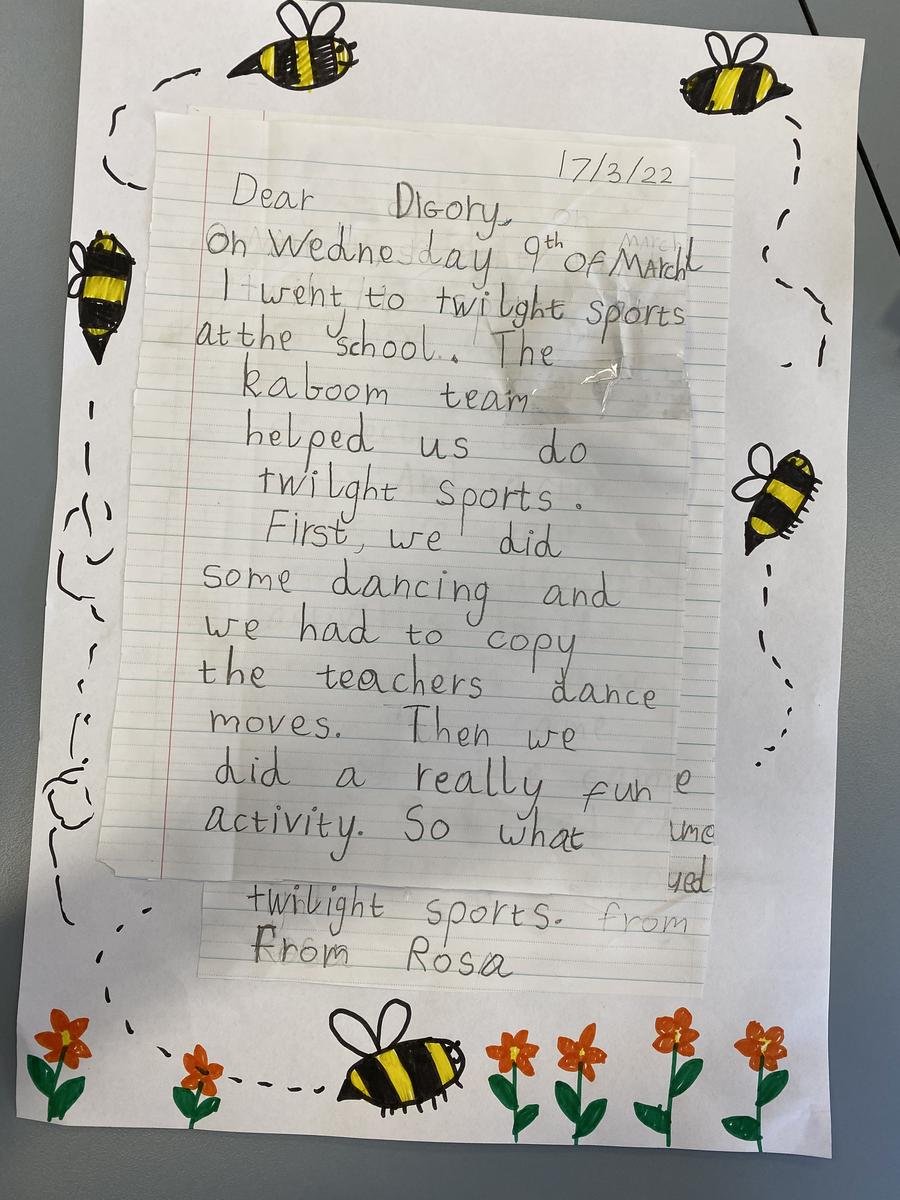 17/3/22
Dear Digory,
On Wednesday 9th of March
I went to twilght sports
at the school. The
kaboom team
helped us do
twilght sports.
First, we did
some dancing and
we had to copy
the teachers dance
moves. Then we
did a really fun
activity. So what
twilight sports. from
From Rosa